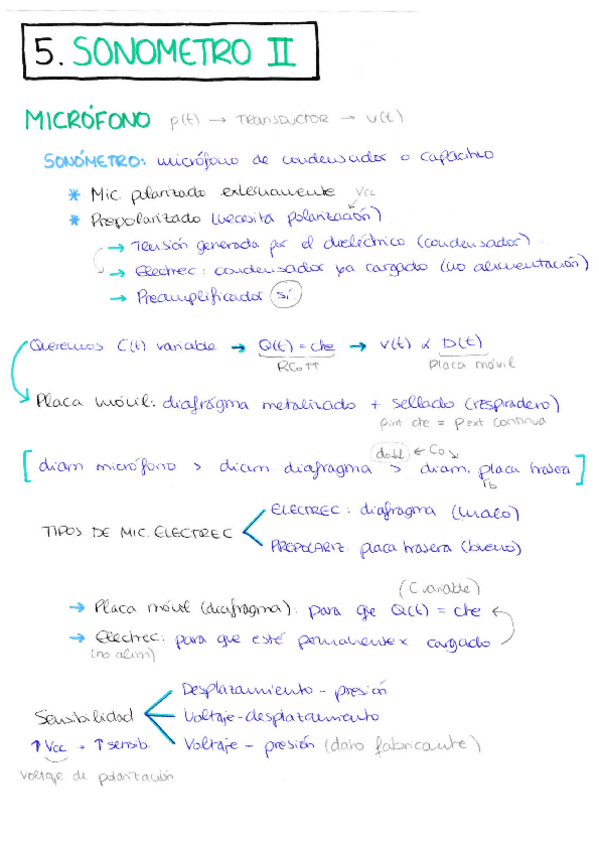 5. SONOMETRO II
MICRÓFONO p(t) → TRANSDUCTOR → v(t)
SONÓMETRO: micrófono de condensador o capacitivo
* Mic. polarizado externamente Vcc
* Prepolarizado (necesita polarización)
→ Tensión generada por el dieléctrico (condensador)
→ Electrec: condensador ya cargado (no alimentación)
→ Preamplificador sí
Queremos C(t) variable → Q(t) = cte → v(t) α D(t)
RC₀↑↑ Placa móvil
Placa móvil: diafrágma metalizado + sellado (respiradero)
pint cte = pext continua
← C₀
[diam micrófono > diam diafragma > diam. placa trasera]
rb
TIPOS DE MIC. ELECTREC
ELECTREC: diafragma (malo)
PREPOLARIZ. placa trasera (bueno)
(C variable)
→ Placa móvil (diafragma): para qe Q(t) = cte
→ Electrec: para que esté permanentex cargado
(no alim)
Sensibilidad
Desplazamiento - presión
Voltaje-desplazamiento
Voltaje - presión (dato fabricante)
↑ Vcc → ↑ sensib.
Voltaje de polarización